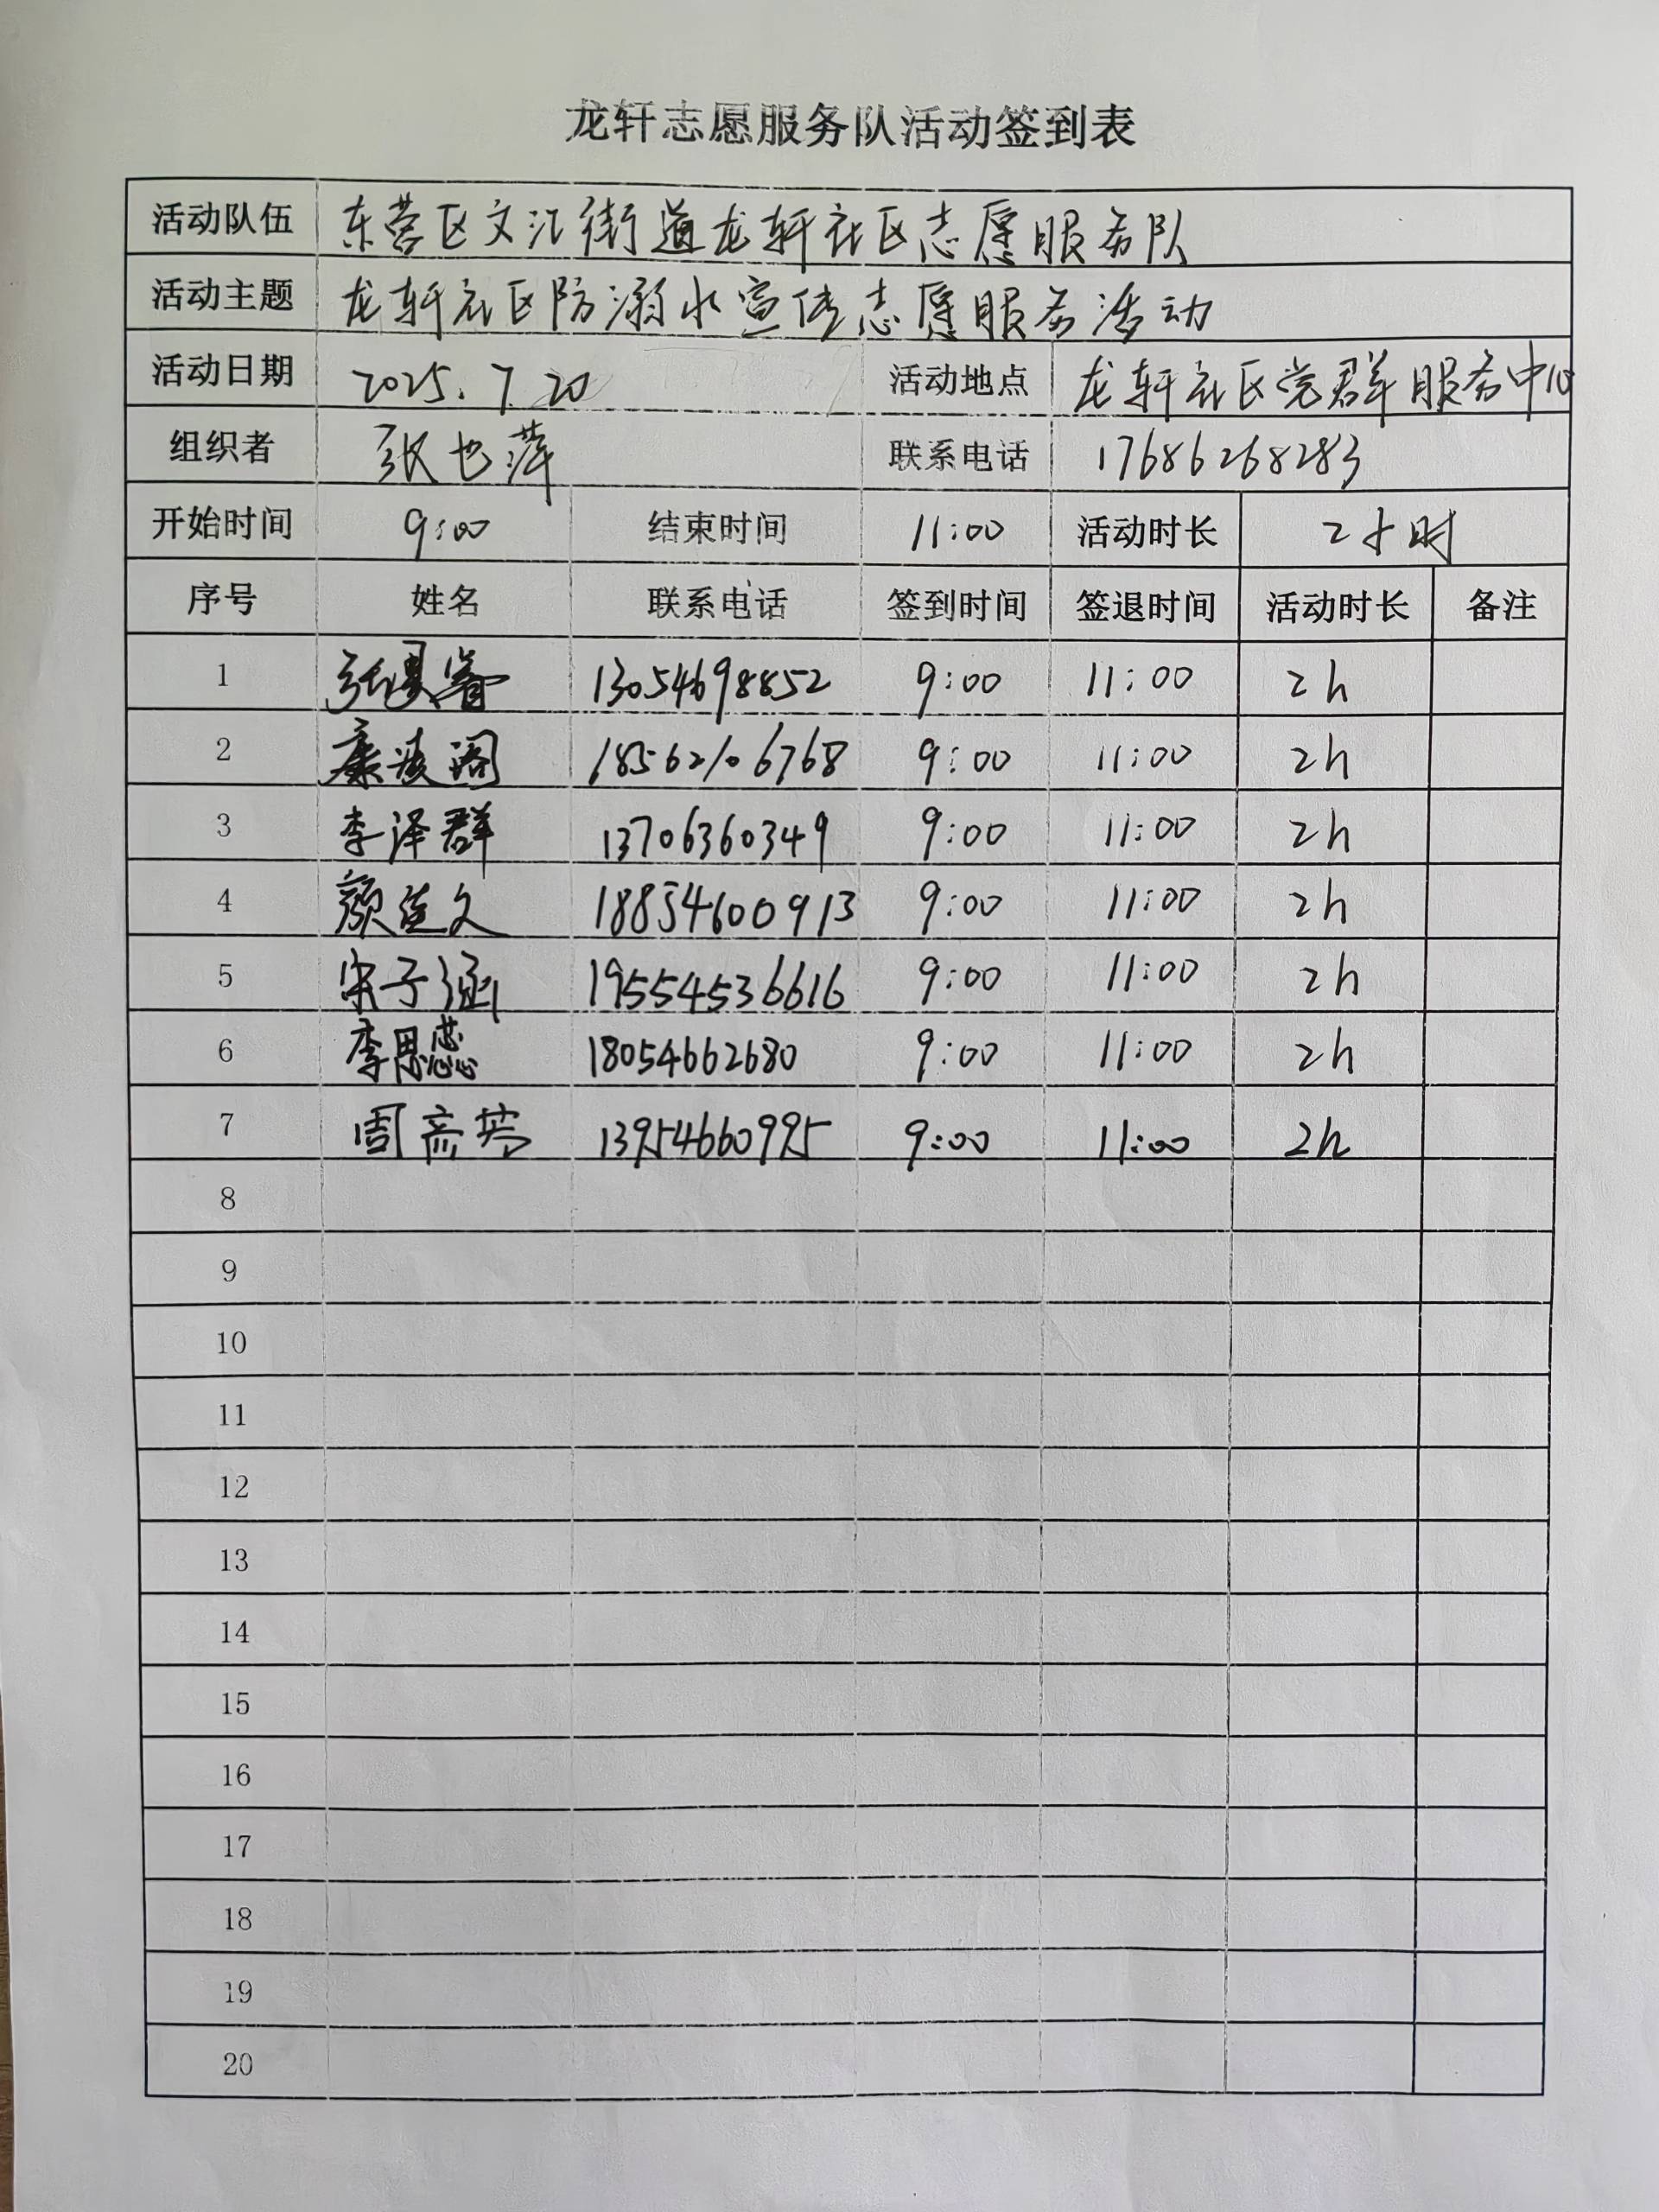 龙轩志愿服务队活动签到表
活动队伍 东营区文汇街道龙轩社区志愿服务队
活动主题 龙轩社区防溺水宣传志愿服务活动
活动日期 2025.7.20 活动地点 龙轩社区党群服务中心
组织者 张也萍 联系电话 17686268283
开始时间 9:00 结束时间 11:00 活动时长 2小时
序号 姓名 联系电话 签到时间 签退时间 活动时长 备注
1 13054698852 9:00 11:00 2h
2 18562106768 9:00 11:00 2h
3 李泽群 13706360349 9:00 11:00 2h
4 颜佳文 18854600913 9:00 11:00 2h
5 宋子涵 19554536616 9:00 11:00 2h
6 李思蕊 18054662680 9:00 11:00 2h
7 13954660995 9:00 11:00 2h
8
9
10
11
12
13
14
15
16
17
18
19
20